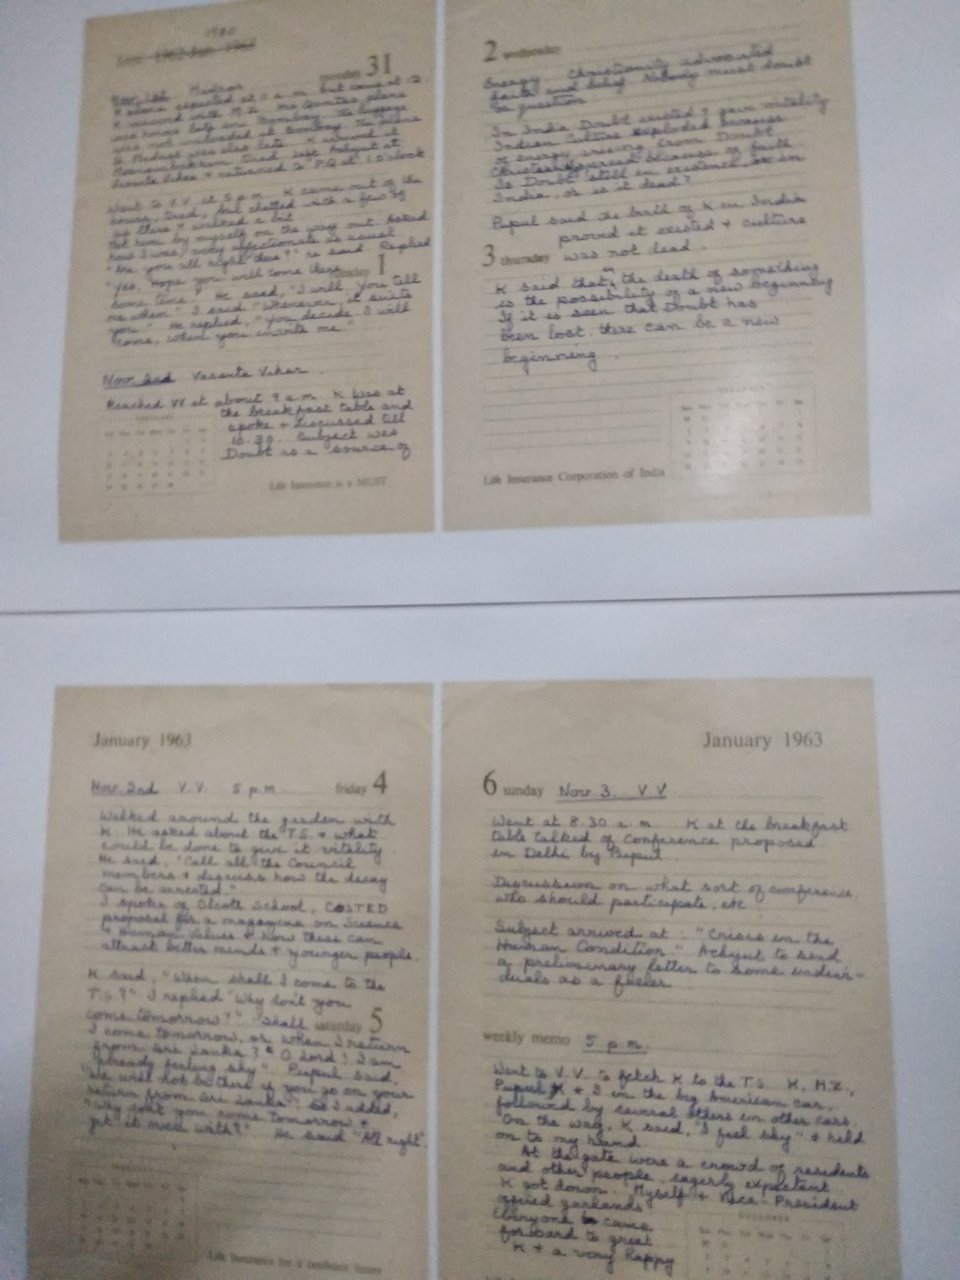 1980
monday 31
Nov. 1st Madras
K's plane expected at 11 a.m. but came at 12
K arrived with M.Z. The Qantas plane
was hours late in Bombay. The luggage
was not unloaded at Bombay. The plane
to Madras was also late. K arrived at
tired. Left Achyut at
Vasanta Vihar & returned to P.Q. at 1.0'clock
Went to V.V. at 5 p.m. K came out of the
house, tired, but chatted with a few of
us there & walked a bit
Met him by myself on the way out. Asked
how I was, very affectionate as usual
"Are you all right there?" he said. Replied
"Yes, Hope you will come there
tuesday 1
some time". He said, "I will. You tell
me when". I said "Whenever it suits
you." He replied, "You decide. I will
come, when you invite me."
Nov. 2nd Vasanta Vihar
Reached VV at about 9 a.m. K was at
the breakfast table and
spoke & discussed till
10.30. Subject was
Doubt as a source of
Life Insurance is a MUST
2 wednesday
Energy. Christianity advocated
faith and belief. Nobody must doubt
or question
In India Doubt existed & gave vitality
Indian culture exploded because
of energy arising from Doubt
Christianity spread because of faith.
Is Doubt still in existence in
India, or is it dead?
Pupul said the birth of K in India
proved it existed & culture
3 thursday was not dead.
K said that, the death of something
is the possibility of a new beginning
If it is seen that Doubt has
been lost, there can be a new
beginning.
Life Insurance Corporation of India
January 1963
Nov. 2nd V.V. 5 p.m. friday 4
Walked around the garden with
K. He asked about the T.S. & what
could be done to give it vitality
He said, "Call all the Council
members & discuss how the decay
can be arrested."
I spoke of Olcott School, COSTED
proposal for a magazine on Science
& Human Values & how these can
attract better minds & younger people.
K said, "When shall I come to the
T.S.?" I replied "Why don't you
come tomorrow?" "Shall saturday 5
I come tomorrow, or when I return
from Sri Lanka? O Lord! I am
already feeling shy". Pupul said,
"We will not be there if you go on your
return from Sri Lanka". So I added,
"Why don't you come tomorrow &
get it over with?" He said "All right".
January 1963
6 sunday Nov 3. V V
Went at 8.30 a.m. K at the breakfast
table talked of Conference proposed
in Delhi by Pupul
Discussion on what sort of conference,
who should participate, etc
Subject arrived at: "Crisis in the
Human Condition" Achyut to send
a preliminary letter to some indivi-
duals as a feeler
weekly memo 5 p.m.
Went to V.V. to fetch K to the T.S. K, M.Z.,
Pupul & I in the big American car,
followed by several others in other cars.
On the way, K said, "I feel shy" & held
on to my hand.
At the gate were a crowd of residents
and other people, eagerly expectant
K got down. Myself & Vice-President
offered garlands
Everyone came
forward to greet
K & a very happy